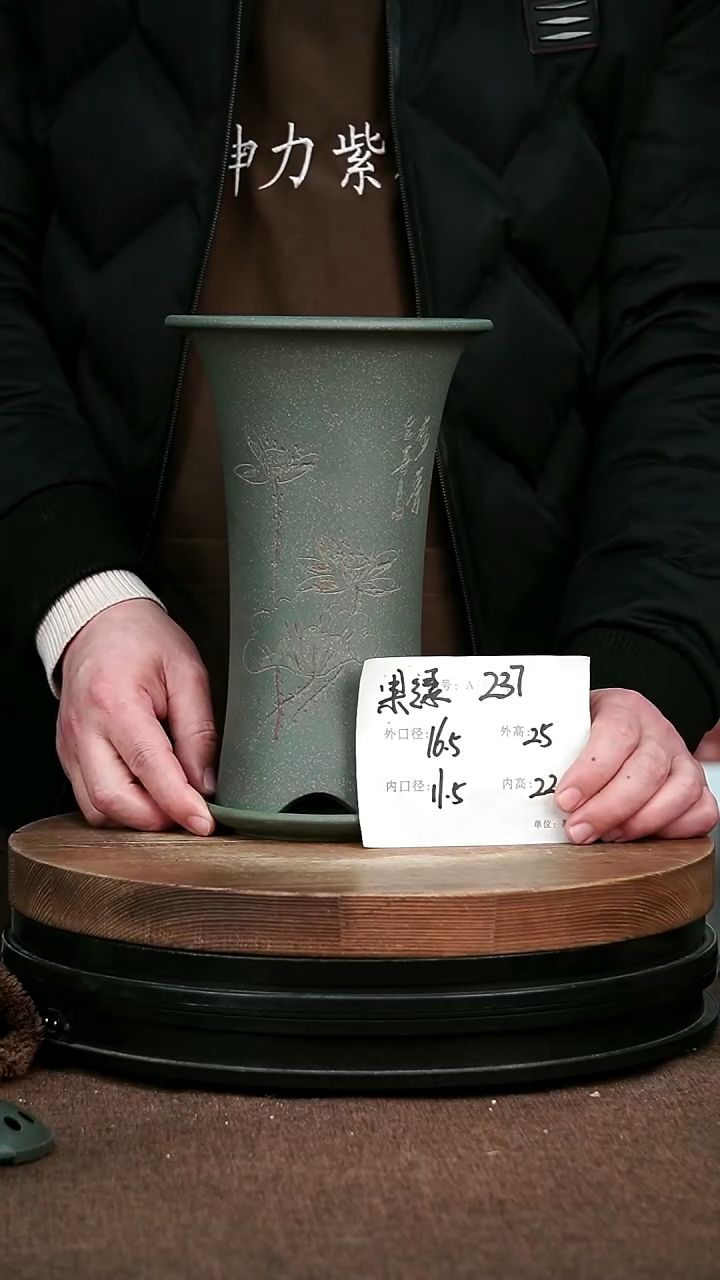 坤力紫
果绿 号：A 237
外口径：16.5 外高：25
内口径：11.5 内高：22
单位：